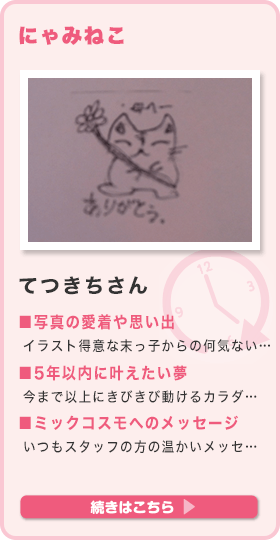 にゃみねこ
ありがとう。
てつきちさん
12
3
9
■写真の愛着や思い出
イラスト得意な末っ子からの何気ない…
■5年以内に叶えたい夢
今まで以上にきびきび動けるカラダ…
■ミックコスモへのメッセージ
いつもスタッフの方の温かいメッセ…
続きはこちら